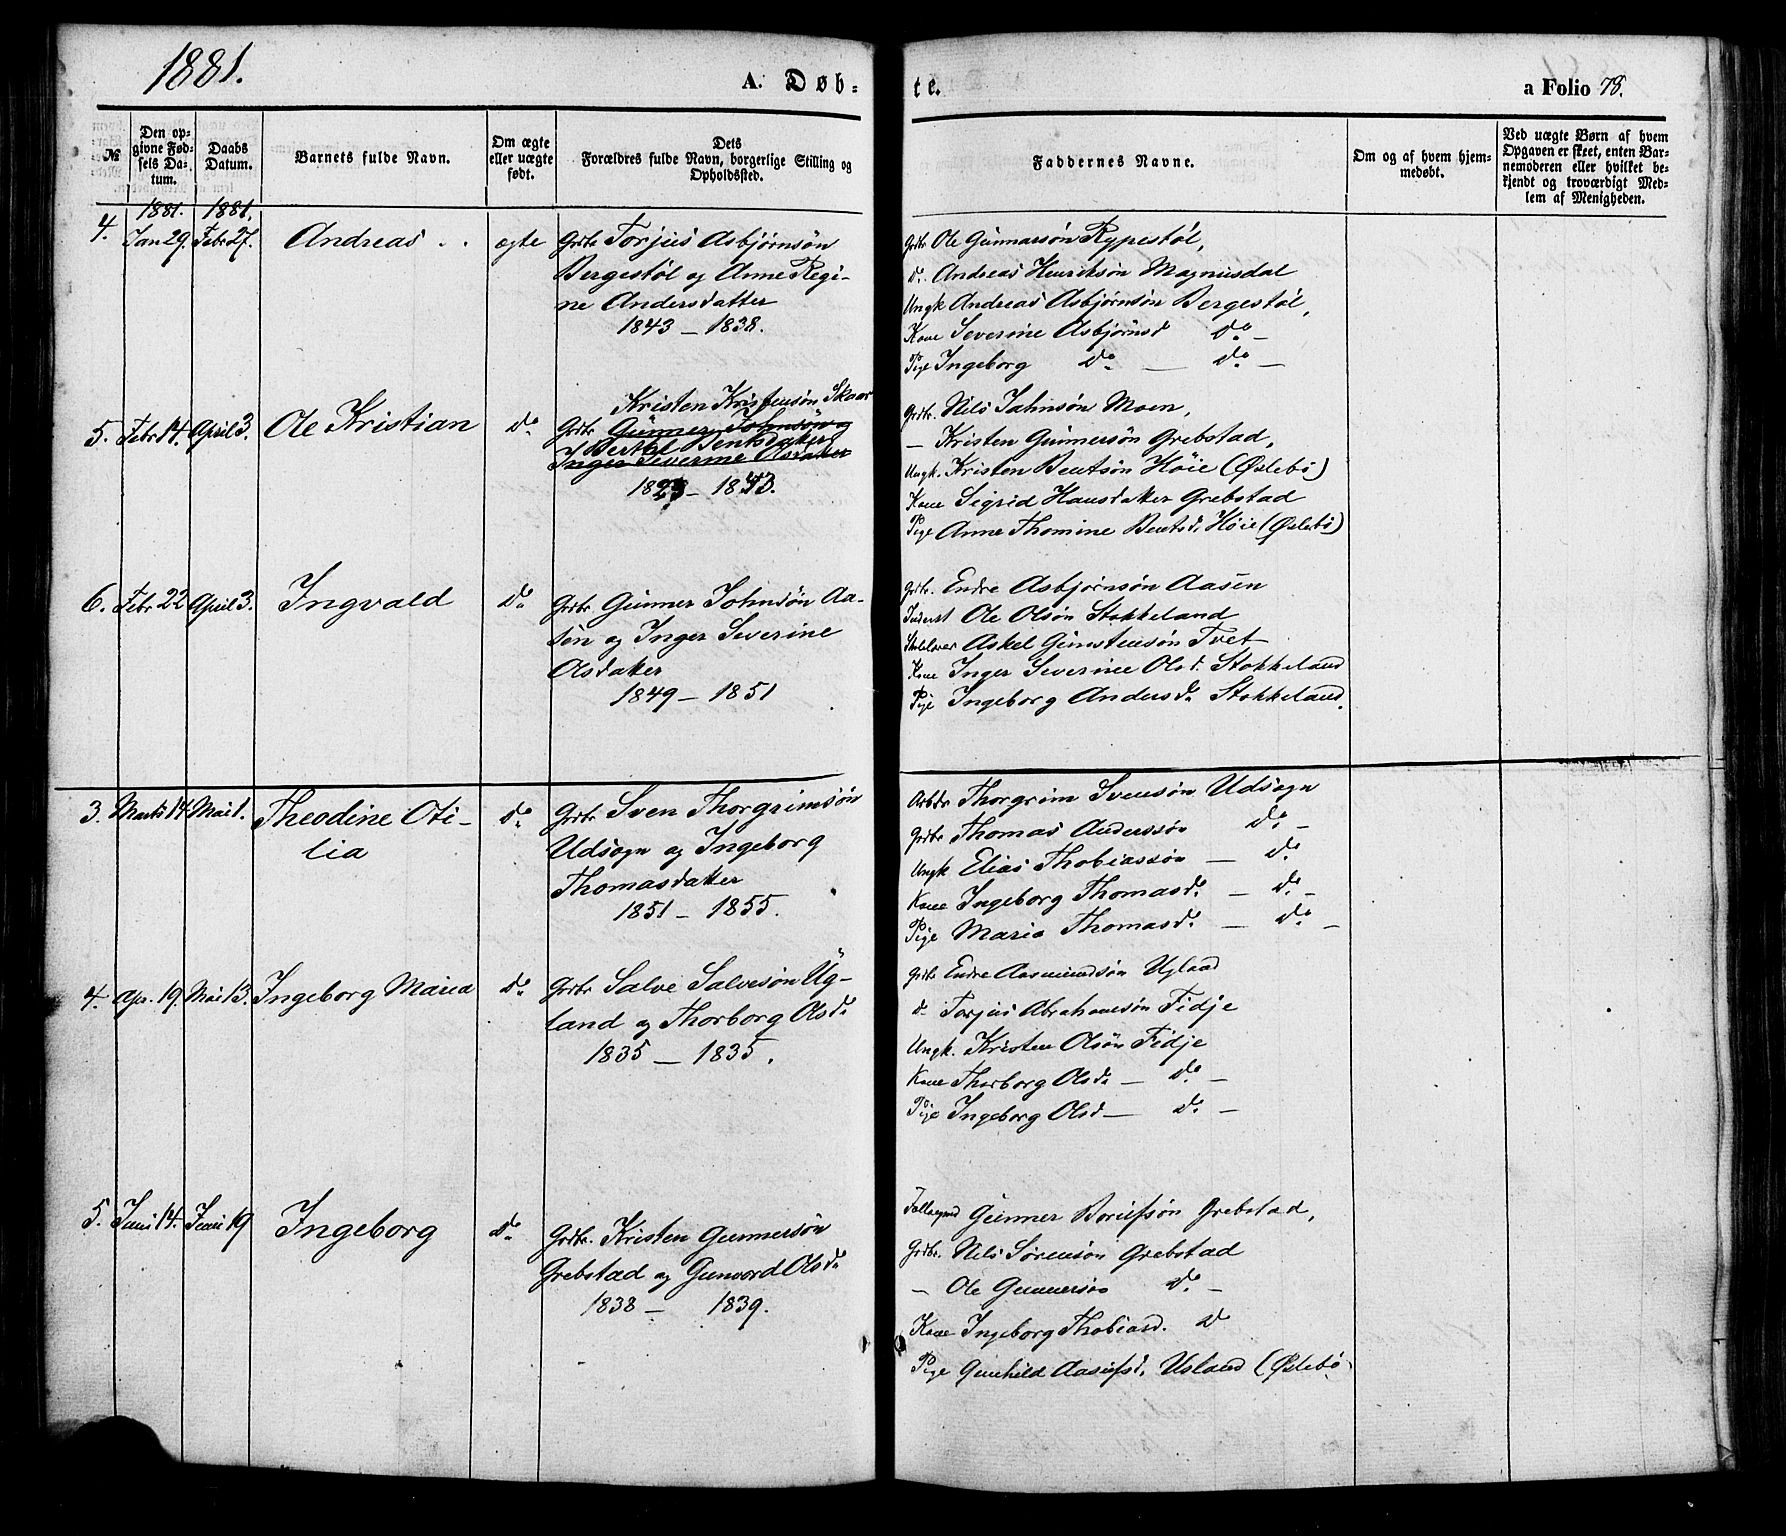 1881.
A. Døb-
te.
a Folio 78.
№
Den op-
givne Fød-
sels Da-
tum.
Daabs
Datum.
Barnets fulde Navn.
Om ægte
eller uægte
født.
Dets
Forældres fulde Navn, borgerlige Stilling og
Opholdssted.
Faddernes Navne.
Om og af hvem hjem-
medøbt.
Ved uægte Børn af hvem
Opgaven er skeet, enten Bar-
nemoderen eller hvilket be-
kjendt og troværdigt Med-
lem af Menigheden.
1881. 1881.
4. Jan 29. Febr 27. Andreas . . ægte Grdbr Torjus Asbjørnsøn
Bergestøl og Anne Regi-
ne Andersdatter
1843 – 1838.
Grdbr Ole Gunnarsøn Rypestøl,
do. Andreas Henriksøn Magnusdal
Ungk Andreas Asbjørnsøn Bergestøl,
Kone Severine Asbjørnsd do. –
Pige Ingeborg do. – do. –
5. Febr 14. April 3. Ole Kristian do.
Kristen Kristensøn Skaar
Grdbr Gunner Johnsøn og
Berthe Bentsdatter
Inger Severine Olsdatter
1823 – 1843.
Grdbr. Nils Jahnsøn Moen,
– Kristen Gunnersøn Grebstad,
Ungk. Kristen Bentsøn Høie (Øslebø)
Kone Sigrid Hansdatter Grebstad
Pige Anne Thomine Bentsd. Høie (Øslebø)
6. Febr 22 April 3. Ingvald do. Grdbr Gunner Johnsøn Aa-
sen og Inger Severine
Olsdatter
1849 – 1851
Grdbr. Endre Asbjørnsøn Aasen
Inderst Ole Olsøn Stokkeland
Skolelærer Askel Gunstensøn Tvet
Kone Inger Severine Olsd. Stokkeland
Pige Ingeborg Andersd. Stokkeland.
3. Marts 14 Mai 1. Theodine Oti-
lia
do. Grdbr Sven Thorgrimsøn
Udsogn og Ingeborg
Thomasdatter
1851 – 1855.
Arbdr Thorgrim Svensøn Udsogn
Grdbr Thomas Anderssøn do. –
Ungk Elias Thobiassøn – do.
Kone Ingeborg Thomasd. – do. –
Pige Maria Thomasd. – do. –
4. Apr. 19. Mai 13. Ingeborg Maria do. Grdbr Salve Salvesøn Ug-
land og Thorborg Olsd.
1835 – 1835.
Grdbr Endre Aasmundsøn Ugland
do Torjus Abrahamsøn Fidje
Ungk. Kristen Olsøn Fidje
Kone Thorborg Olsd. – do. –
Pige Ingeborg Olsd – do. –
5. Juni 14. Juni 19 Ingeborg do. Grdbr. Kristen Gunnersøn
Grebstad og Gunvord Olsd.
1838 – 1839.
Gunner Grebstad,
Grdbr. Nils Sørensøn Grebstad
– Ole Gunnersøn do. –
Kone Ingeborg Thobiasd. do
Pige Gunhild (Øslebø